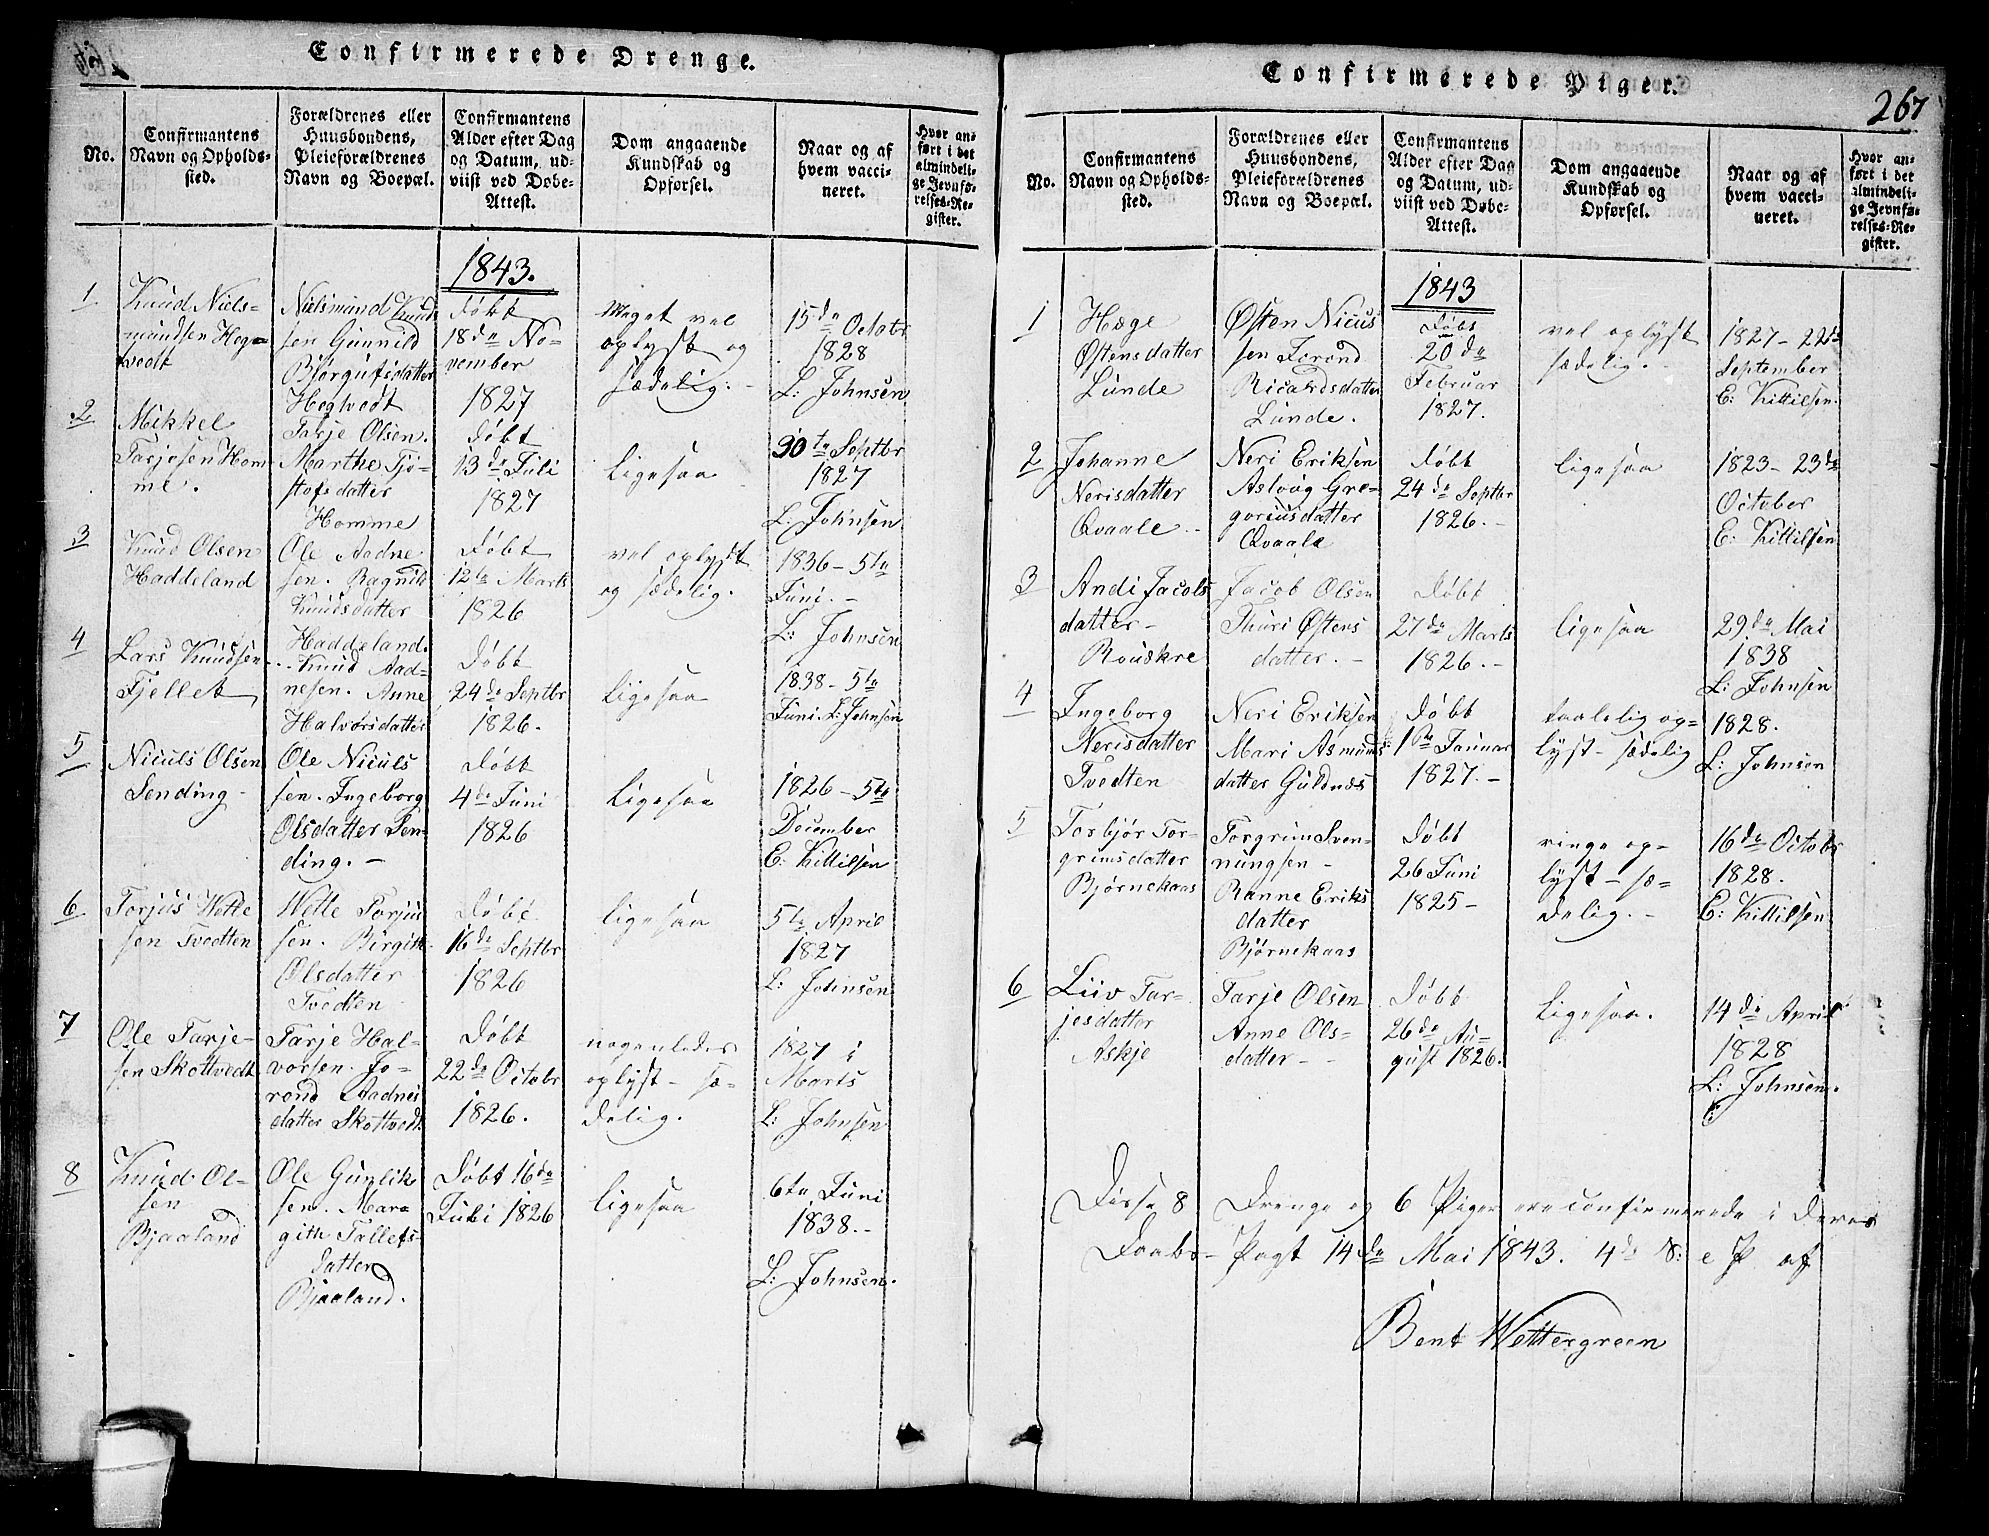 Confirmerede Drenge.
No.
Confirmantens
Navn og Opholds-
sted.
Forældrenes eller
Huusbondens,
Pleieforældrenes
Navn og Boepæl.
Confirmantens
Alder efter Dag
og Datum, ud-
viist ved Døbe-
Attest.
Dom angaaende
Kundskab og
Opførsel.
Naar og af
hvem vacci-
neret.
Hvor an-
ført i det
almindeli-
ge Jevnfø-
relses-Re-
gister.
1843.
1
Knud Niels-
mundsen Heg-
vedt
Nielsmund Knud
sen Gunnild
Bjørgufsdatter
Hegtvedt
døbt
18de No-
vember
1827
Meget vel
oplyst og
sædelig. -
15de Octobr
1828
L. Johnsen
2
Mikkel
Tarjesen Hom
me.
Tarje Olsen.
Marthe Tjø-
stofsdatter
Homme
døbt
13de Juli
1827
ligesaa
30te Septbr
1827
L: Johnsen
3
Knud Olsen
Haddeland
Ole Aadne
sen. Ragnild
Knudsdatter
Haddeland.
Døbt
12te Marts
1826
vel oplyst
og sædelig.
1836 - 5te
Juni. -
L: Johnsen
4
Lars Knudsen
Fjellet
Knud Aad-
nesen. Anne
Halvorsdatter
Døbt
24de Septbr
1826.
ligesaa
1838 - 5te
Juni L: Johnsen
5
Niculs Olsen
Sending -
Ole Niculs
sen. Ingeborg
Olsdatter Sen-
ding. -
Døbt
4de Juni
1826
ligesaa
1826 - 5te
December
E: Kittilsen
6
Torjus Wette
sen Tvedten
Wette Torjus
sen. Birgith
Olsdatter
Tvedten
Døbt
16de Septbr
1826
ligesaa
5te April
1827
L: Johnsen
7
Ole Tarje-
sen Skottvedt
Tarje Hal-
vorsen. Jo-
rond Aadnes
datter Skottvedt
Døbt
22de Octobr
1826.
nogenledes
oplyst - sæ-
delig.
1827 i
Marts
L: Johnsen
8
Knud Ol-
sen
Bjaaland
Ole Gunlik
sen. Mar-
gith Tallefs-
datter
Bjaaland.
Døbt 16de
Juli 1826
ligesaa
6te Juni
1838. -
L: Johnsen.
Confirmerede Piger.
267
No.
Confirmantens
Navn og Opholds-
sted.
Forældrenes eller
Huusbondens,
Pleieforældrenes
Navn og Boepæl.
Confirmantens
Alder efter Dag
og Datum, ud-
viist ved Døbe-
Attest.
Dom angaaende
Kundskab og
Opførsel.
Naar og af
hvem vacci-
neret.
Hvor an-
ført i det
almindeli-
ge Jevnfø-
relses-Re-
gister.
1843
1
Hæge
Østensdatter
Lunde
Østen Nicus
sen Jorond
Ricardsdatter
Lunde.
døbt
20de
Februar
1827.
vel oplyst
sædelig. -
1827 - 22de
September
E: Kittilsen.
2
Johanne
Nerisdatter
Qvaale -
Neri Eriksen
Asloug Gre-
goriusdatter
Qvaale
døbt
24de Septbr
1826. -
ligesaa
1823 - 23de
October
E: Kittilsen
3
Andi Jacobs
datter -
Rouskre
Jacob Olsen
Thuri Østens
datter. -
Døbt
27de Marts
1826. -
ligesaa
29de Mai
1838
L: Johnsen
4
Ingeborg
Nerisdatter
Tvedten
Neri Eriksen
Mari Asmunds
datter Guldnes
Døbt
1ste Januar
1827. -
taalelig op-
lyst - sædelig
1828.
L: Johnsen
5
Torbjør Tor-
grimsdatter
Bjørnekaas
Torgrim Sven-
nungsen -
Ranne Eriks
datter
Bjørnekaas
Døbt
26 Juni
1825 -
ringe op-
lyst - sæ-
delig. -
16de Octobr
1828.
E: Kittilsen
6
Liiv Tar-
jesdatter
Askje
Tarje Olsen
Anne Ols-
datter - -
Døbt
26de Au-
gust 1826.
ligesaa.
14de April
1828
L: Johnsen.
Disse 8 Drenge og 6 Piger ere confirmerede i deres
Daabs-Pagt 14de Mai 1843. 4de S: e P. af
Bent Wettergreen